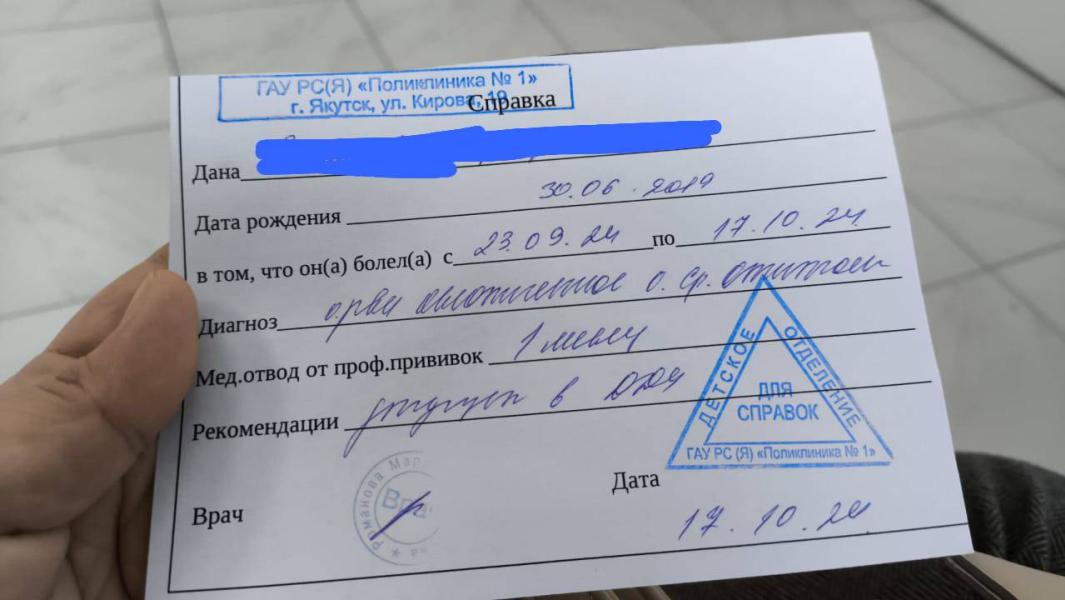 ГАУ РС(Я) «Поликлиника № 1»
г. Якутск, ул. Кирова, 19
Справка
Дана
Дата рождения 30.06.2019
в том, что он(а) болел(а) с 23.09.24 по 17.10.24
Диагноз орви осложненное о. ср. отитом
Мед.отвод от проф.прививок 1 месяц
Рекомендации допуск в ДДУ
ДЕТСКОЕ ОТДЕЛЕНИЕ
ДЛЯ
СПРАВОК
ГАУ РС (Я) «Поликлиника № 1»
Врач
Романова Мар
Вра
Дата
17.10.24